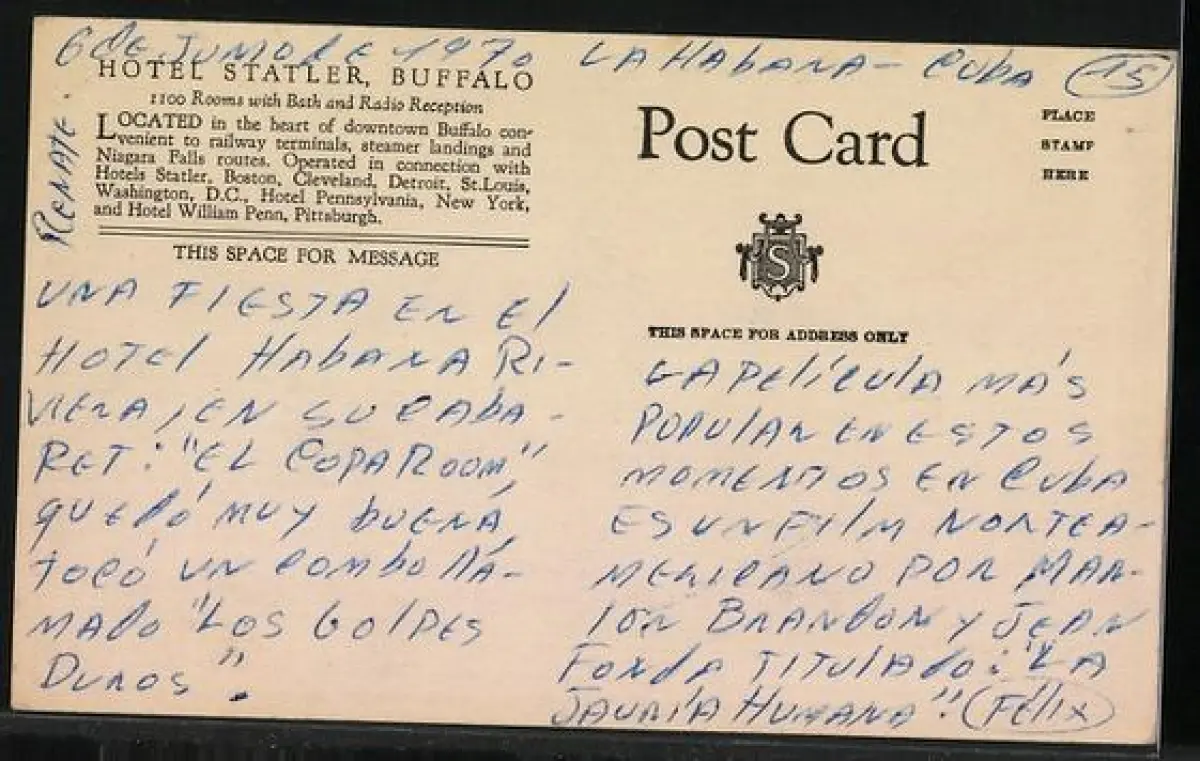 6 de Junio de 1970 LA HABANA - CUBA (15)
HOTEL STATLER, BUFFALO
1100 Rooms with Bath and Radio Reception
LOCATED in the heart of downtown Buffalo con-
venient to railway terminals, steamer landings and
Niagara Falls routes. Operated in connection with
Hotels Statler, Boston, Cleveland, Detroit, St.Louis,
Washington, D.C., Hotel Pennsylvania, New York,
and Hotel William Penn, Pittsburgh.
RENATE -
THIS SPACE FOR MESSAGE
UNA FIESTA EN El
HOTEl HAbANA RI-
VIERA, EN SU CAbA-
RET: "EL COPA ROOM"
QUEDÓ MUY bUENA,
TOCÓ UN COMbO llA-
MADO "LOS GOlPES
DUROS".
Post Card
PLACE
STAMP
HERE
S
THIS SPACE FOR ADDRESS ONLY
LA PElÍCUlA MÁS
POPUlAR EN ESTOS
MOMENTOS EN CUbA
ES UN FIlM NORTEA-
MERICANO POR MAR-
lON BRANDON Y JEAN
FONDA TITUlADO: "LA
JAURÍA HUMANA". (FÉlIX)